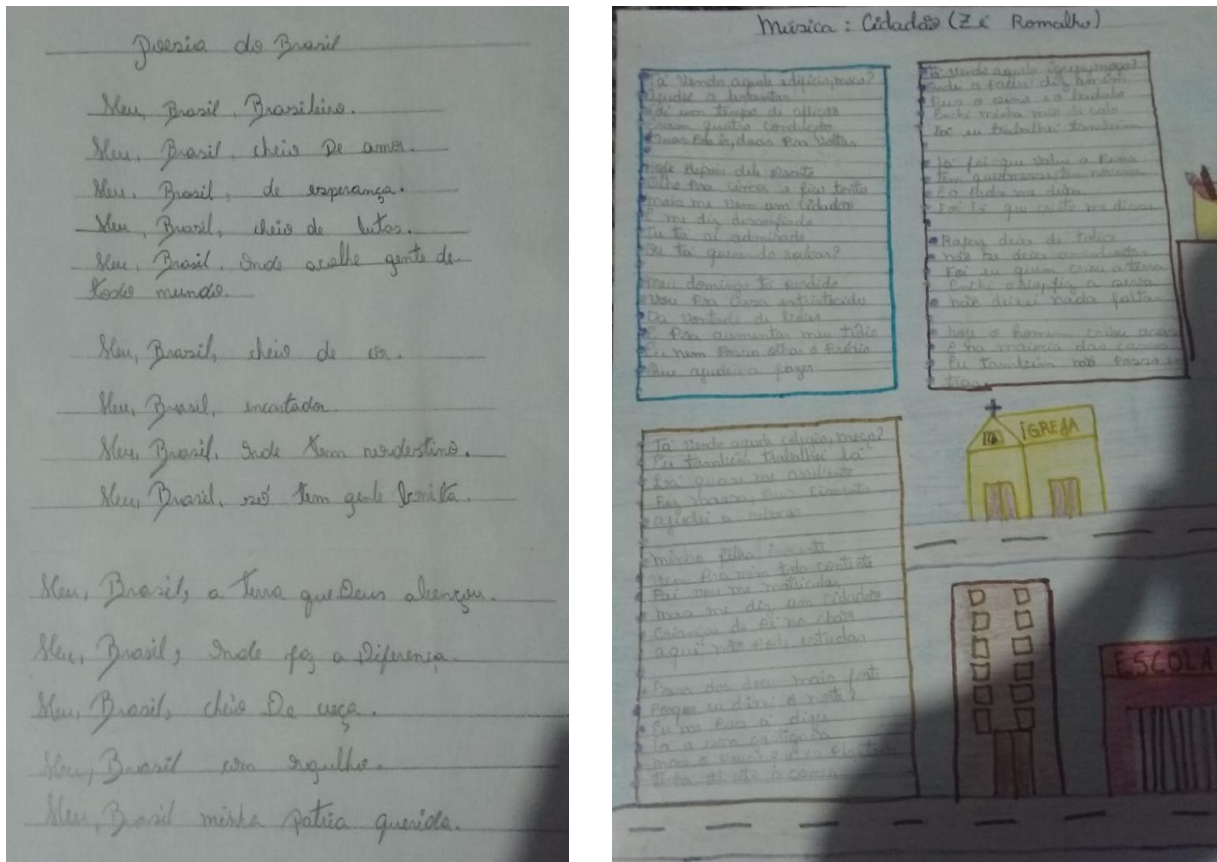 Poesia do Brasil
Meu, Brasil, Brasileiro.
Meu, Brasil, cheio De amor.
Meu, Brasil, de esperança.
Meu, Brasil, cheio de lutas.
Meu, Brasil. Onde acolhe gente de
todo mundo.
Meu, Brasil, cheio de cor.
Meu, Brasil, encantador.
Meu, Brasil, Onde tem nordestino.
Meu, Brasil, só tem gente bonita.
Meu, Brasil, a terra que Deus abençou.
Meu, Brasil, Onde faz a Diferença.
Meu, Brasil, cheio De
Meu, Brasil com orgulho.
Meu, Brasil minha patria querida.
Música: Cidadão (Zé Romalho)
Tá vendo aquele edifício, moço?
Ajudei a levantar
Foi um tempo de aflição
Eram quatro condução
Duas Pra ir, duas Pra voltar
Hoje depois dele Pronto
Olho Pra cima e fico tonto
mais me vem um cidadão
E me diz desconfiado
Tu tá aí admirado
Ou tá querendo roubar?
Meu domingo tá perdido
Vou Pra casa entristecido
Da vontade de beber
E Pra aumentar meu tédio
Eu nem Posso olhar o Prédio
Que ajudei a fazer
Tá vendo aquele colégio, moço?
Eu também trabalhei lá
Lá quase me
Fiz massa, Pus cimento
ajudei a rebocar
minha filha inocente
Vem Pra mim toda contente
Pai vou me matricular
mas me diz um cidadão
Criança de Pé no chão
aqui não Pode estudar
Essa dor doeu mais forte
Porque eu deixei o norte?
Eu me Pus a dizer
Lá a seca castigava
mas o Pouco que eu Plantava
tinha direito a comer
Tá vendo aquela igreja, moço?
Onde o Padre diz amém
Pus o sino e o badalo
Enchi minha mão de calo
Lá eu trabalhei também
Lá foi que valeu a Pena
Tem quermesse, tem novena
E o Padre me deixa
Foi lá que cristo me disse
Rapaz deixe de tolice
não se deixe
Foi eu quem criou a terra
Enchi o rio, fiz a serra
não deixei nada faltar
hoje o homem criou asas
E na maioria das casas
Eu também não Posso en
trar
IGREJA
ESCOLA